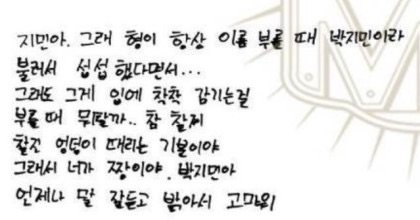 지민아. 그래 형이 항상 이름 부를 때 박지민이라
불러서 섭섭 했다면서...
그래도 그게 입에 착착 감기는걸
부를 때 뭐랄까.. 참 찰져
찰진 엉덩이 때리는 기분이야
그래서 너가 짱이야. 박지민아
언제나 말 잘듣고 밝아서 고마워